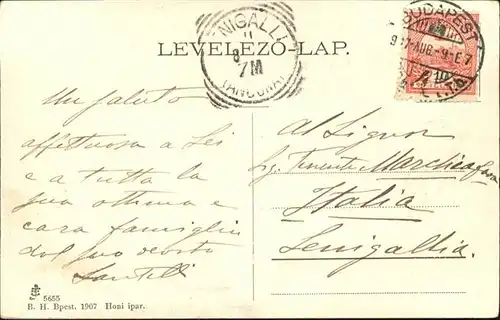 LEVELEZŐ-LAP.
NIGALLI
11
8
7M
(ANCONA)
BUDAPEST
907 AUG.-9-E7
10
Un saluto
affettuoso a Lei
e a tutta la
sua ottima e
cara famiglia
dal suo devoto
Santelli
Al Signor
Sig. Tenente Marchia
Italia
Senigallia.
5655
B. H. Bpest. 1907 Honi ipar.